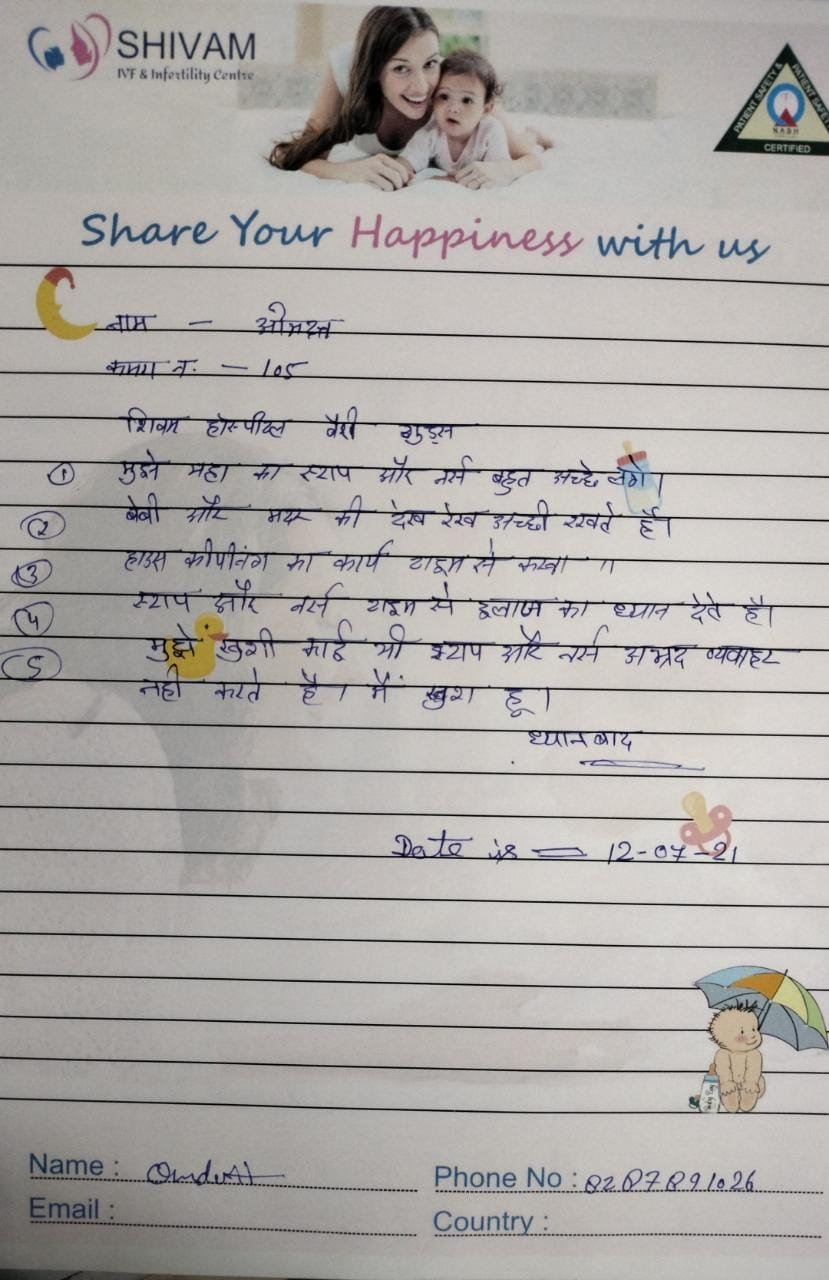 SHIVAM
IVF & Infertility Centre
PATIENT SAFETY &
PATIENT SAFETY
N.A.B.H
CERTIFIED
Share Your Happiness with us
नाम - ओमदत्त
न. - 105
शिवम होस्पीटल वैरी गुड्स
① मुझे यहा का स्टाप और नर्स बहुत अच्छे लगे।
② बेबी और मदर की देख रेख अच्छी रखते है।
③ हाउस कीपीनिंग का कार्य टाइम से करवा ॥
④ स्टाप और नर्स टाइम से इलाज का ध्यान देते है।
⑤ मुझे खुशी कोई भी स्टाप और नर्स अभद्र व्यवाहर
नही करते है। मैं खुश हू।
ध्यानबाद
Date is — 12-07-21
Name : Omdutt
Phone No :
Email :
Country :